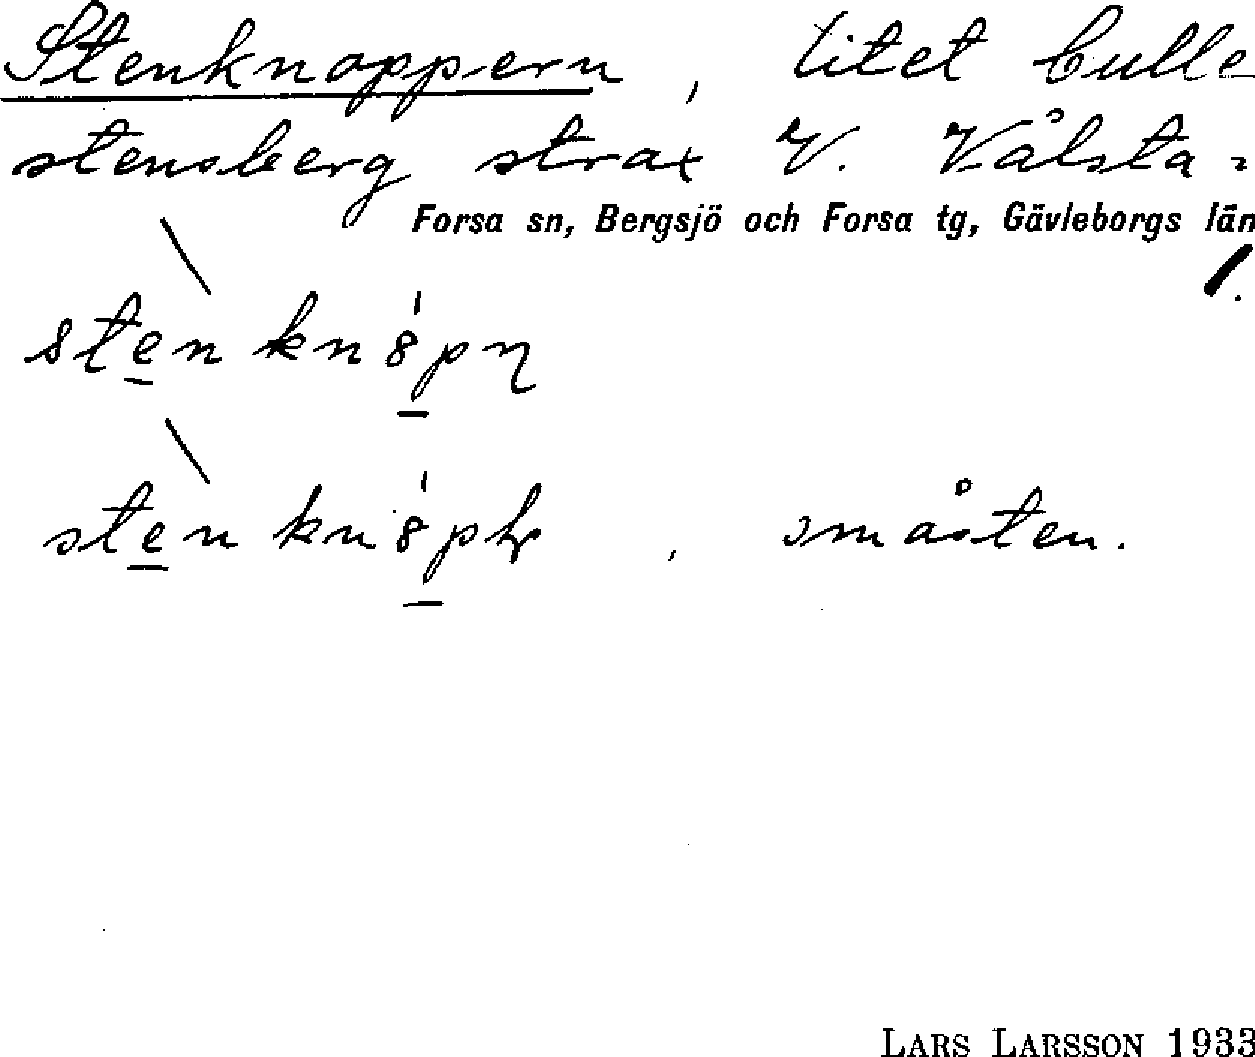 Stenknoppern, litet bulle
stensberg strax V. Vålsta =
Forsa sn, Bergsjö och Forsa tg, Gävleborgs län
1.
sten
småsten.
LARS LARSSON 1933